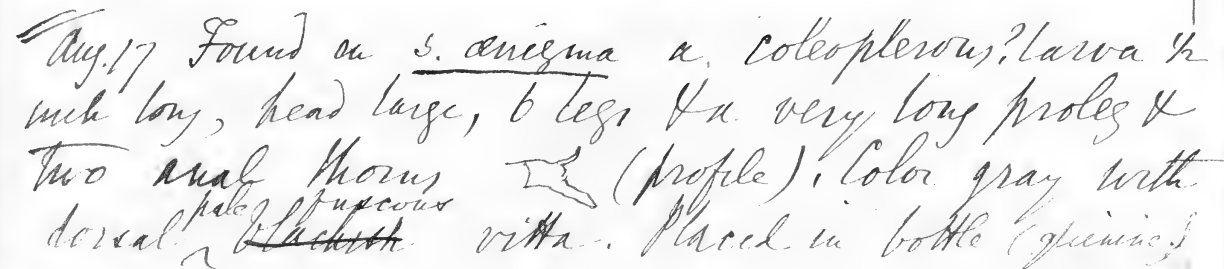 Aug. 17 Found on S. ænigma a coleopterous? larva ½
inch long, head large, 6 legs & a very long proleg &
two anal thorns (profile). Color gray with
dorsal pale fuscous blackish vitta. Placed in bottle